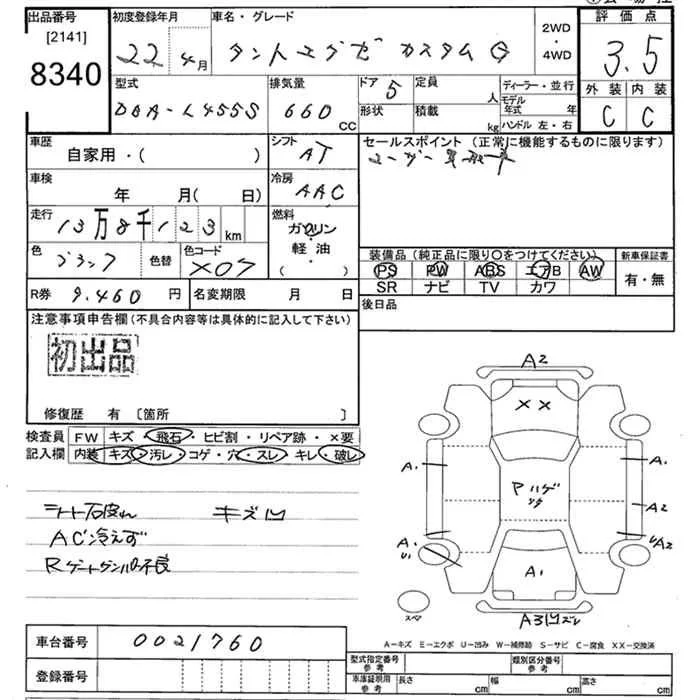 出品番号 [2141] 8340
初度登録年月 22年 4月
車名・グレード タントエグゼ カスタム G
2WD・4WD
評価点 3.5
外装 内装
C C
型式 DBA-L455S
排気量 660 CC
ドア 5 形状
定員 人
積載 kg
ディーラー・並行
モデル年式 年
ハンドル 左・右
車歴 自家用・( )
シフト AT
セールスポイント (正常に機能するものに限ります)
車検 年 月( 日)
冷房 AAC
走行 13万8千123km
燃料 ガソリン・軽油・( )
色 ブラック 色替 色コード X07
装備品 (純正品に限り〇をつけてください)
新車保証書
PS PW ABS エアB AW
有・無
SR ナビ TV カワ
R券 9.460 円 名変期限 月 日
後日品
注意事項申告欄 (不具合内容等は具体的に記入して下さい)
初出品
修復歴 有 [箇所 ]
検査員記入欄
FW キズ・飛石・ヒビ割・リペア跡・×要
内装 キズ・汚レ・コゲ・穴・スレ・キレ・破レ
キズ凹
AC冷えず
A2
XX
A1 A1
A ハゲ
A2
A1 U1
UA2
A1
スペア
A3凹ズレ
A-キズ E-エクボ U-凹み W-補修跡 S-サビ C-腐食 XX-交換済
車台番号 0021760
登録番号
型式指定番号 参考
類別区分番号 参考
車庫証明用 参考 長さ cm 幅 cm 高さ cm